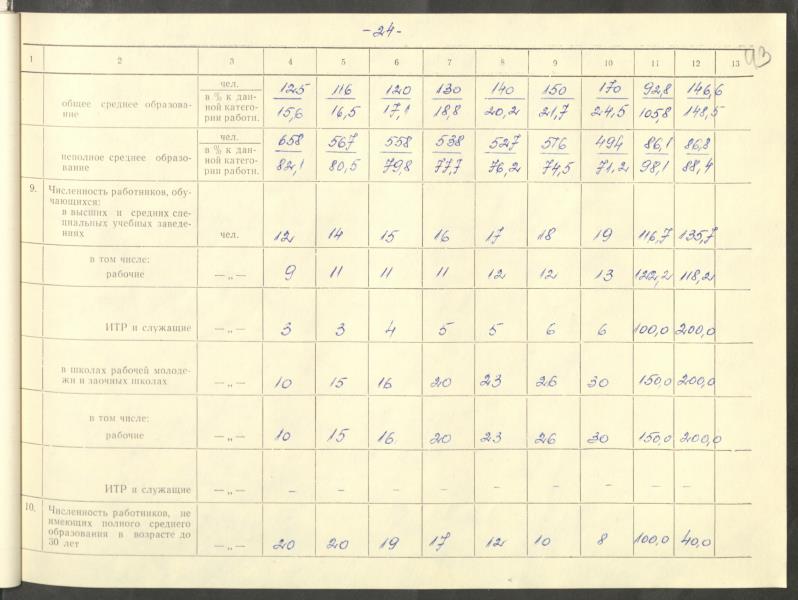 -24-
93
1 2 3 4 5 6 7 8 9 10 11 12 13
общее среднее образова-
ние
чел. 125 116 120 130 140 150 170 92,8 146,6
в % к дан-
ной катего-
рии работн. 15,6 16,5 17,1 18,8 20,2 21,7 24,5 105,8 148,5
неполное среднее образо-
вание
чел. 658 567 558 538 527 516 494 86,1 86,8
в % к дан-
ной катего-
рии работн. 82,1 80,5 79,8 77,7 76,2 74,5 71,2 98,1 88,4
9. Численность работников, обу-
чающихся:
в высших и средних спе-
циальных учебных заведе-
ниях чел. 12 14 15 16 17 18 19 116,7 135,7
в том числе:
рабочие —„— 9 11 11 11 12 12 13 122,2 118,2
ИТР и служащие —„— 3 3 4 5 5 6 6 100,0 200,0
в школах рабочей молоде-
жи и заочных школах —„— 10 15 16 20 23 26 30 150,0 200,0
в том числе:
рабочие —„— 10 15 16 20 23 26 30 150,0 200,0
ИТР и служащие —„— – – – – – – – – –
10. Численность работников, не
имеющих полного среднего
образования в возрасте до
30 лет —„— 20 20 19 17 12 10 8 100,0 40,0